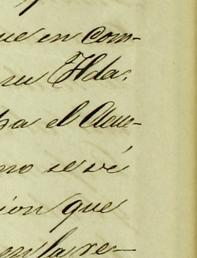 ue en Com-
su Hda.
pa el Acue-
no se vé
ion que
en la re-